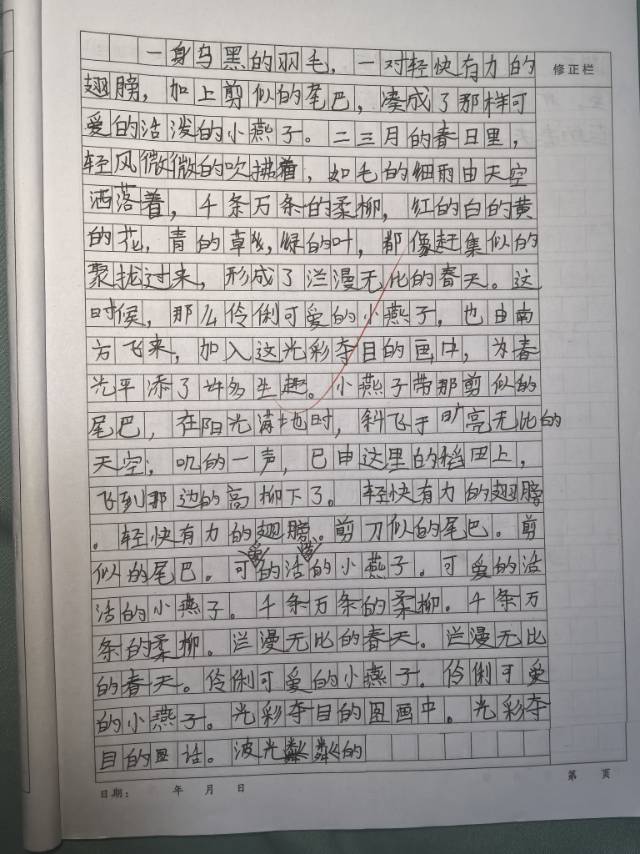 一身乌黑的羽毛，一对轻快有力的
修正栏
翅膀，加上剪似的尾巴，凑成了那样可
爱的活泼的小燕子。二三月的春日里，
轻风微微的吹拂着，如毛的细雨由天空
洒落着，千条万条的柔柳，红的白的黄
的花，青的草，绿的叶，都像赶集似的
聚拢过来，形成了烂漫无比的春天。这
时候，那么伶俐可爱的小燕子，也由南
方飞来，加入这光彩夺目的画中，为春
光平添了许多生趣。小燕子带那剪似的
尾巴，在阳光满地时，斜飞于旷亮无比的
天空，叽的一声，已由这里的稻田上，
飞到那边的高柳下了。轻快有力的翅膀
。轻快有力的翅膀。剪刀似的尾巴。剪
似的尾巴。可爱的活泼的小燕子。可爱的活
活的小燕子。千条万条的柔柳。千条万
条的柔柳。烂漫无比的春天。烂漫无比
的春天。伶俐可爱的小燕子。伶俐可爱
的小燕子。光彩夺目的图画中。光彩夺
目的图话。波光粼粼的
日期： 年 月 日
第 页